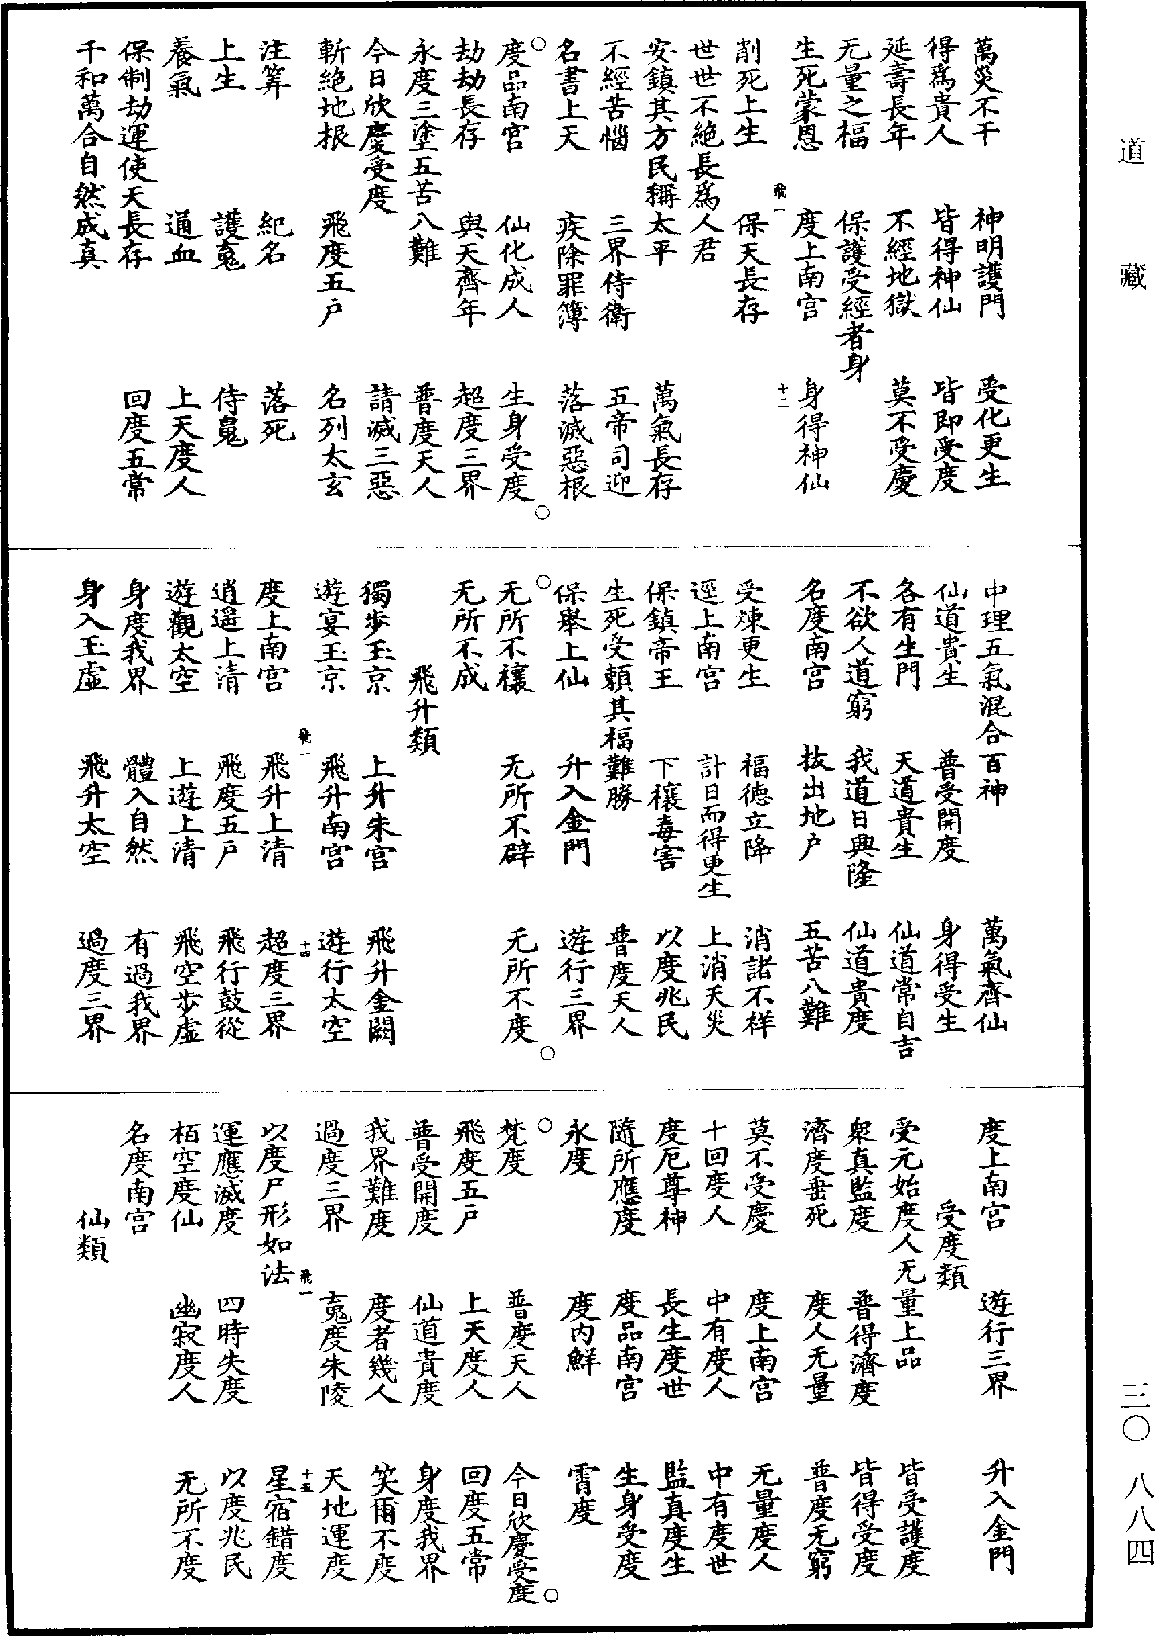 道 藏
萬災不干 神明護門 受化更生
得為貴人 皆得神仙 皆即受度
延壽長年 不經地獄 莫不受慶
无量之福 保護受經者身
生死蒙恩 度上南宮 身得神仙
飛一 十二
削死上生 保天長存
世世不絕長為人君
安鎮其方民稱太平 萬氣長存
不經苦惱 三界侍衛 五帝司迎
名書上天 疾除罪簿 落滅惡根
○度品南宮 仙化成人 生身受度○
劫劫長存 與天齊年 超度三界
永度三塗五苦八難 普度天人
今日欣慶受度 請滅三惡
斬絕地根 飛度五戶 名列太玄
注筭 紀名 落死
上生 護䰟 侍䰟
養氣 通血 上天度人
保制劫運使天長存 回度五常
千和萬合自然成真
中理五氣混合百神 萬氣齊仙
仙道貴生 普受開度 身得受生
各有生門 天道貴生 仙道常自吉
不欲人道窮 我道日興隆 仙道貴度
名度南宮 拔出地戶 五苦八難
受凍更生 福德立降 消諸不祥
逕上南宮 計日而得更生 上消天災
保鎮帝王 下禳毒害 以度兆民
生死受賴其福難勝 普度天人
保舉上仙 升入金門 遊行三界
○无所不禳 无所不辟 无所不度○
无所不成
飛升類
獨步玉京 上升朱宮 飛升金闕
遊宴玉京 飛升南宮 遊行太空
飛一 十四
度上南宮 飛升上清 超度三界
逍遥上清 飛度五戶 飛行鼓從
遊觀太空 上遊上清 飛空步虛
身度我界 體入自然 有過我界
身入玉虛 飛升太空 過度三界
度上南宮 遊行三界 升入金門
受度類
受元始度人无量上品 皆受護度
衆真監度 普得濟度 皆得受度
濟度垂死 度人无量 普度无窮
莫不受慶 度上南宮 无量度人
十回度人 中有度人 中有度世
度厄尊神 長生度世 監真度生
隨所應度 度品南宮 生身受度
永度 度內鮮 霄度
○梵度 普度天人 今日欣慶受度○
飛度五戶 上天度人 回度五常
普受開度 仙道貴度 身度我界
我界難度 度者幾人 笑爾不度
過度三界 䰟度朱陵 天地運度
飛一 十五
以度尸形如法 星宿錯度
運應滅度 四時失度 以度兆民
栢空度仙 幽寂度人 无所不度
名度南宮
仙類
三〇 八八四